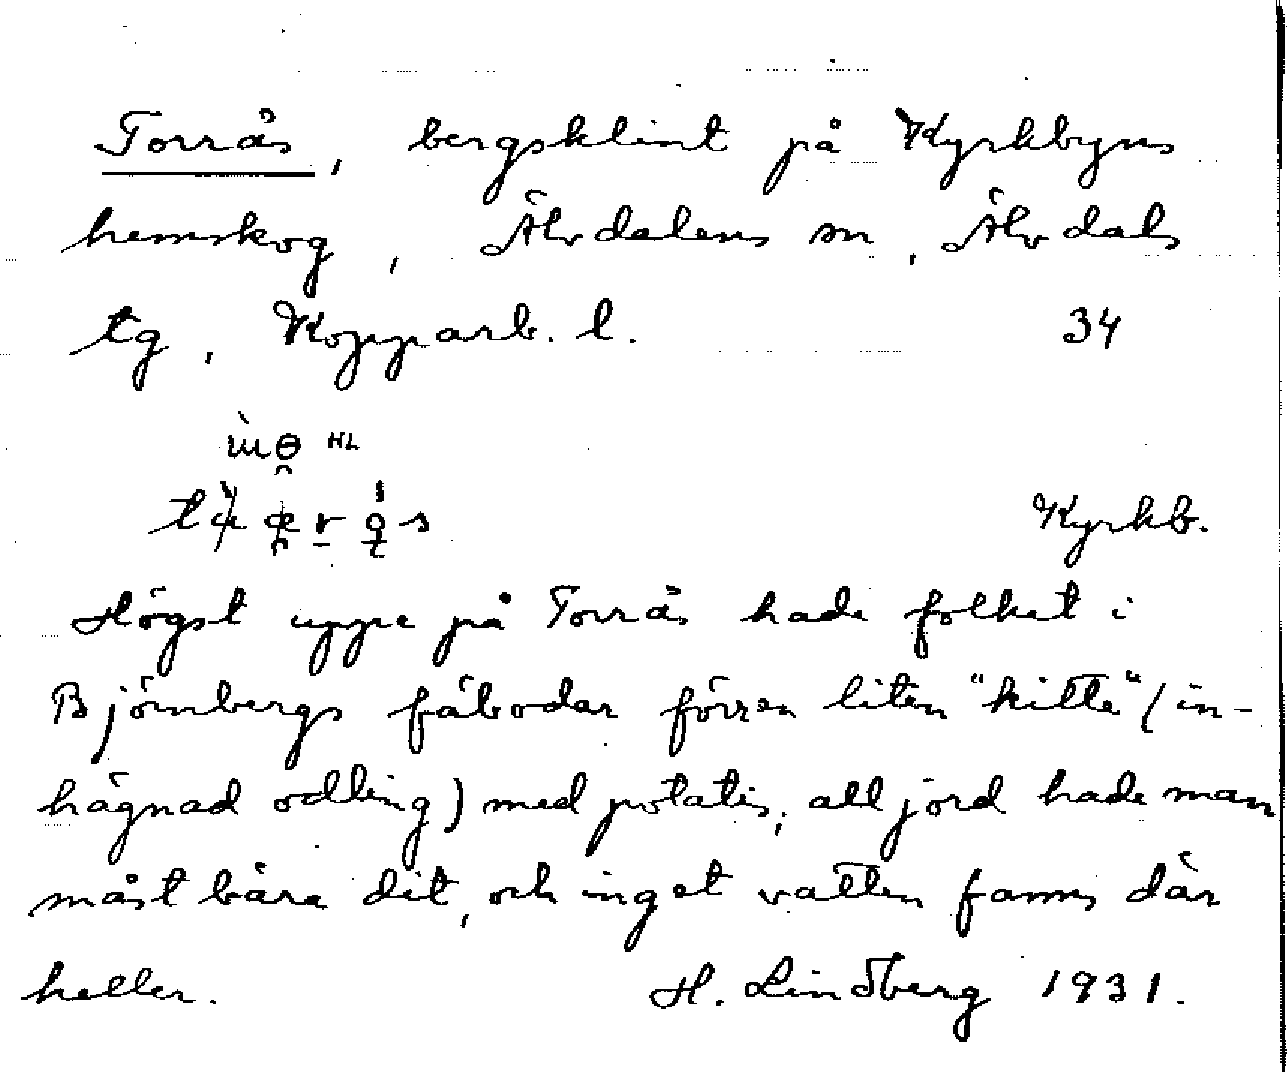 Torrås, bergsklint på Kyrkbyns
hemskog, Älvdalens sn, Älvdals
tg, Kopparb. l. 34
HL
Kyrkb.
Högst uppe på Torrås hade folket i
Björnbergs fäbodar förr en liten "kitte" (in-
hägnad odling) med potatis, all jord hade man
måst bära dit, och inget vatten fanns där
heller. H. Lindberg 1931.